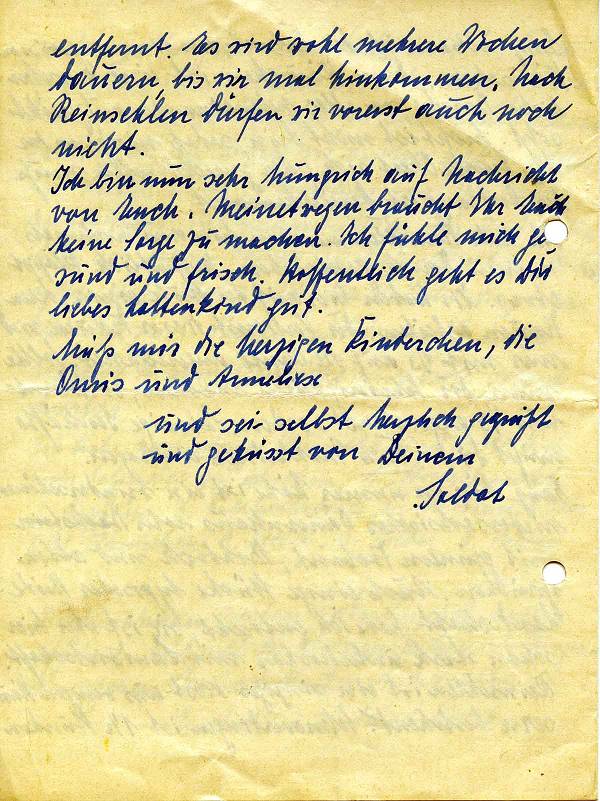 entfernt. Es wird wohl mehrere Wochen
dauern, bis wir mal hinkommen. Nach
Reinsehlen dürfen wir vorerst auch noch
nicht.
Ich bin nun sehr hungrich auf Nachricht
von Euch. Meinetwegen braucht Ihr Euch
keine Sorge zu machen. Ich fühle mich ge
sund und frisch. Hoffentlich geht es Dir
liebes Lottenkind gut.
Grüß mir die herzigen Kinderchen, die
Omis und Anneliese
und sei selbst herzlich gegrüßt
und geküsst von Deinem
Soldat